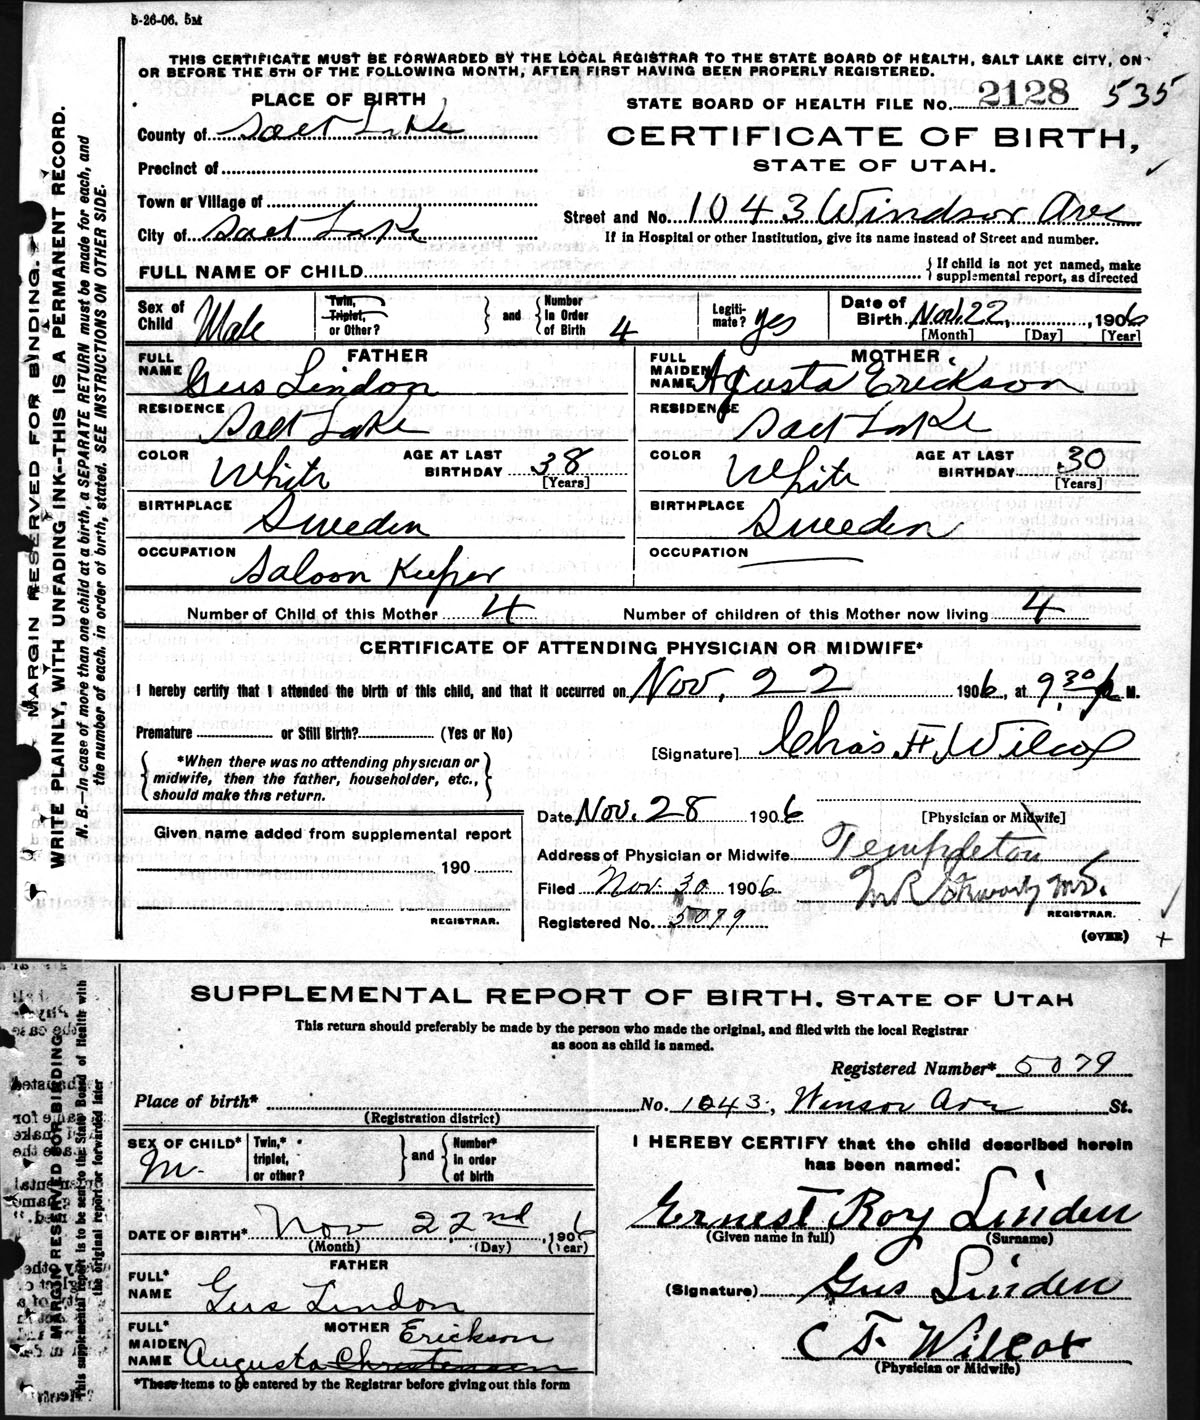 5-26-06. 5M
THIS CERTIFICATE MUST BE FORWARDED BY THE LOCAL REGISTRAR TO THE STATE BOARD OF HEALTH, SALT LAKE CITY, ON
OR BEFORE THE 5TH OF THE FOLLOWING MONTH, AFTER FIRST HAVING BEEN PROPERLY REGISTERED.
PLACE OF BIRTH
STATE BOARD OF HEALTH FILE No. 2128 535
County of Salt Lake
CERTIFICATE OF BIRTH,
STATE OF UTAH.
Precinct of
Town or Village of
Street and No. 1043 Windsor Ave
City of Salt Lake
If in Hospital or other Institution, give its name instead of Street and number.
FULL NAME OF CHILD
{If child is not yet named, make
supplemental report, as directed
Sex of Child Male
Twin, Triplet, or Other?
and
Number in Order of Birth 4
Legiti-mate? yes
Date of Birth Nov. 22, 1906
[Month] [Day] [Year]
FATHER
FULL NAME Gus Lindon
MOTHER.
FULL MAIDEN NAME Agusta Erickson
RESIDENCE Salt Lake
RESIDENCE Salt Lake
COLOR White AGE AT LAST BIRTHDAY 38 [Years]
COLOR White AGE AT LAST BIRTHDAY 30 [Years]
BIRTHPLACE Sweden
BIRTHPLACE Sweden
OCCUPATION Saloon Keeper
OCCUPATION
Number of Child of this Mother 4 Number of children of this Mother now living 4
CERTIFICATE OF ATTENDING PHYSICIAN OR MIDWIFE*
I hereby certify that I attended the birth of this child, and that it occurred on Nov. 22 1906, at 9.30 P M.
Premature or Still Birth? (Yes or No)
[Signature] Chas F. Wilcox
*When there was no attending physician or
midwife, then the father, householder, etc.,
should make this return.
Date Nov. 28 1906
[Physician or Midwife]
Given name added from supplemental report
190
REGISTRAR.
Address of Physician or Midwife Templeton
Filed Nov. 30 1906
M R Stewart M.D.
REGISTRAR.
Registered No. 5079
(OVER) +
MARGIN RESERVED FOR BINDING.
WRITE PLAINLY, WITH UNFADING INK--THIS IS A PERMANENT RECORD.
N. B.—In case of more than one child at a birth, a SEPARATE RETURN must be made for each, and
the number of each, in order of birth, stated. SEE INSTRUCTIONS ON OTHER SIDE.
SUPPLEMENTAL REPORT OF BIRTH, STATE OF UTAH
This return should preferably be made by the person who made the original, and filed with the local Registrar
as soon as child is named.
Registered Number* 5079
Place of birth* No. 1043, Winsor Ave St.
(Registration district)
SEX OF CHILD* M.
Twin,* triplet, or other?
and
Number* in order of birth
I HEREBY CERTIFY that the child described herein
has been named:
Ernest Roy Linden
(Given name in full) (Surname)
DATE OF BIRTH* Nov 22nd, 1906
(Month) (Day) (Year)
FATHER
FULL* NAME Gus Lindon
(Signature) Gus Linden
MOTHER
FULL* MAIDEN NAME Augusta Christensen Erickson
C F. Wilcox
(Physician or Midwife)
*These items to be entered by the Registrar before giving out this form
MARGIN RESERVED FOR BINDING.
This supplemental report is to be sent to the State Board of Health with
the original report or forwarded later